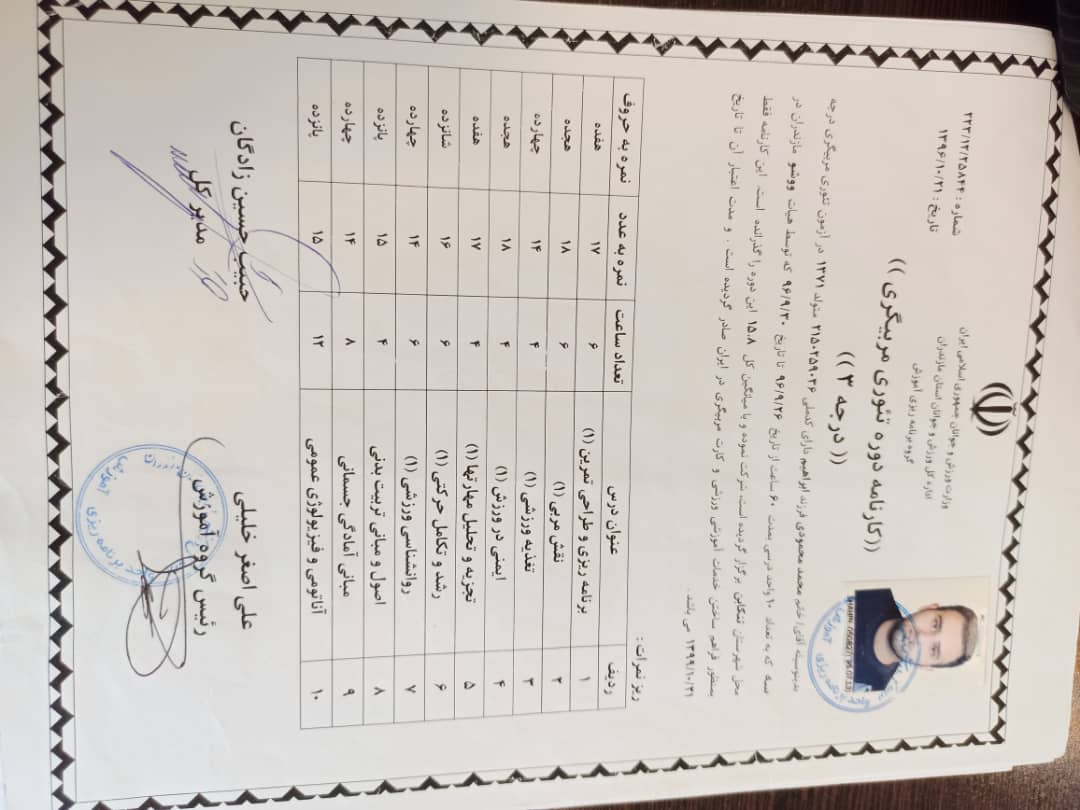 وزارت ورزش و جوانان جمهوری اسلامی ایران
اداره کل ورزش و جوانان استان مازندران
گروه برنامه ریزی آموزش
شماره : ۲۲۳/۱۲/۲۵۸۴۴
تاریخ : ۱۳۹۶/۱۰/۲۱
((کارنامه دوره تئوری مربیگری))
((درجه ۳))
بدینوسیله آقای/ خانم محمد محمودی فرزند ابراهیم دارای کدملی ۲۱۵۰۲۵۹۰۲۶ متولد ۱۳۷۱ در آزمون تئوری مربیگری درجه
سه که به تعداد ۱۰ واحد درسی بمدت ۶۰ ساعت از تاریخ ۹۶/۹/۲۶ تا تاریخ ۹۶/۹/۳۰ که توسط هیات ووشو مازندران در
محل شهرستان تنکابن برگزار گردیده است، شرکت نموده و با میانگین کل ۱۵.۸ این دوره را گذرانده است. این کارنامه فقط
بمنظور فراهم ساختن خدمات آموزشی ورزشی و کارت مربیگری در ایران صادر گردیده است . و مدت اعتبار آن تا تاریخ
۱۳۹۹/۱۰/۲۱ می باشد .
ریز نمرات :
ردیف عنوان درس تعداد ساعت نمره به عدد نمره به حروف
۱ برنامه ریزی و طراحی تمرین (۱) ۶ ۱۷ هفده
۲ نقش مربی (۱) ۶ ۱۸ هجده
۳ تغذیه ورزشی (۱) ۴ ۱۴ چهارده
۴ ایمنی در ورزش (۱) ۴ ۱۸ هجده
۵ تجزیه و تحلیل مهارتها (۱) ۴ ۱۷ هفده
۶ رشد و تکامل حرکتی (۱) ۶ ۱۶ شانزده
۷ روانشناسی ورزشی (۱) ۶ ۱۴ چهارده
۸ اصول و مبانی تربیت بدنی ۴ ۱۵ پانزده
۹ مبانی آمادگی جسمانی ۸ ۱۴ چهارده
۱۰ آناتومی و فیزیولوژی عمومی ۱۲ ۱۵ پانزده
علی اصغر خلیلی
رئیس گروه آموزش
حبیب حسین زادگان
مدیر کل